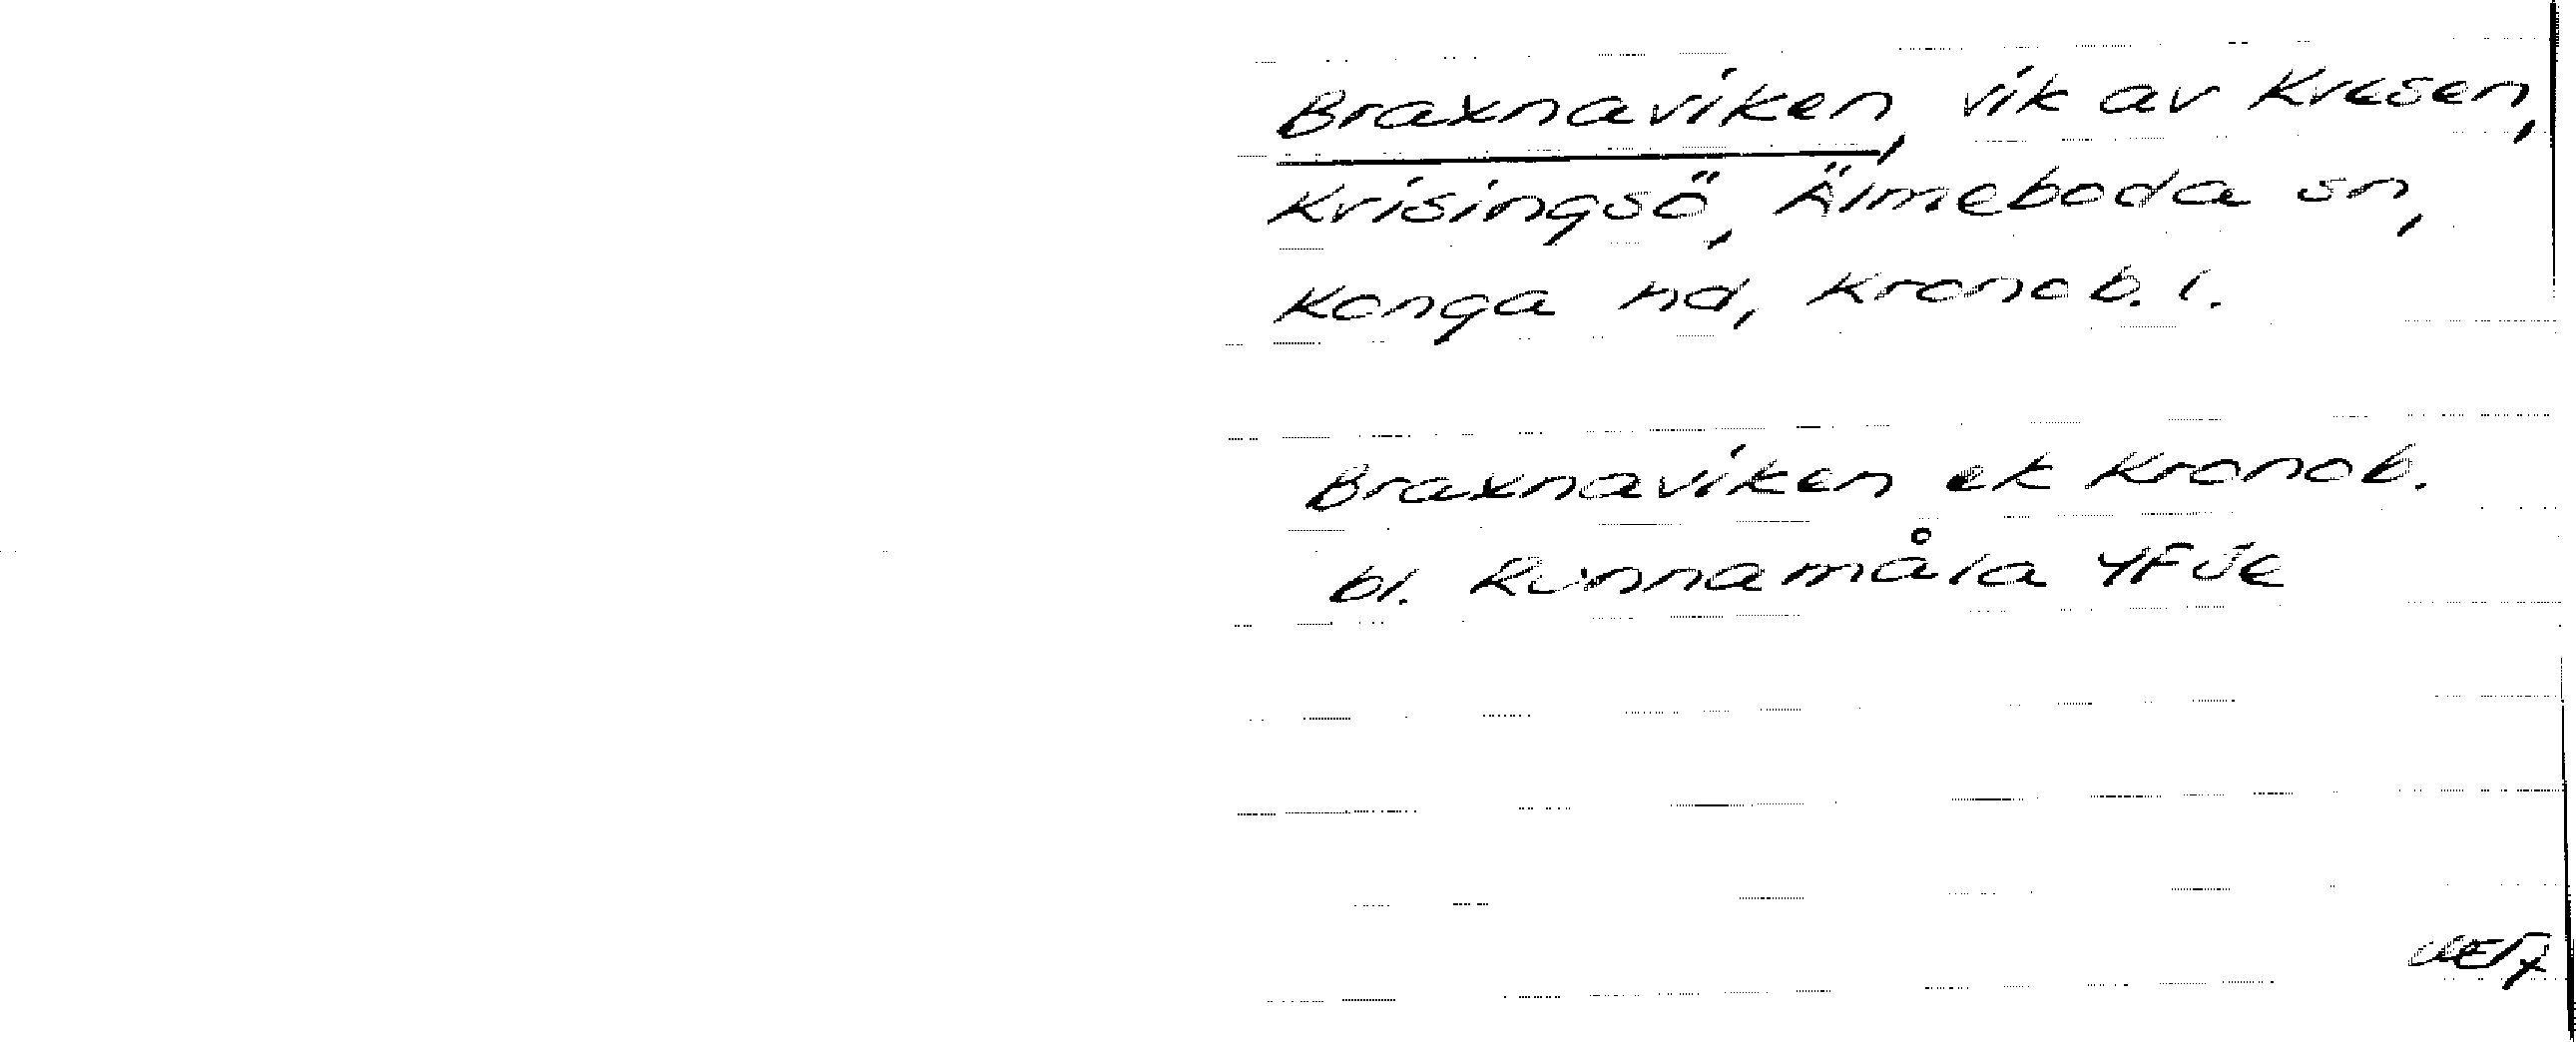 Braxnaviken, vik av Kvesen,
Krisingsö, Älmeboda sn,
Konga hd, Kronob. l.
Braxnaviken ek Kronob.
bl. Runnamåla 4F Je